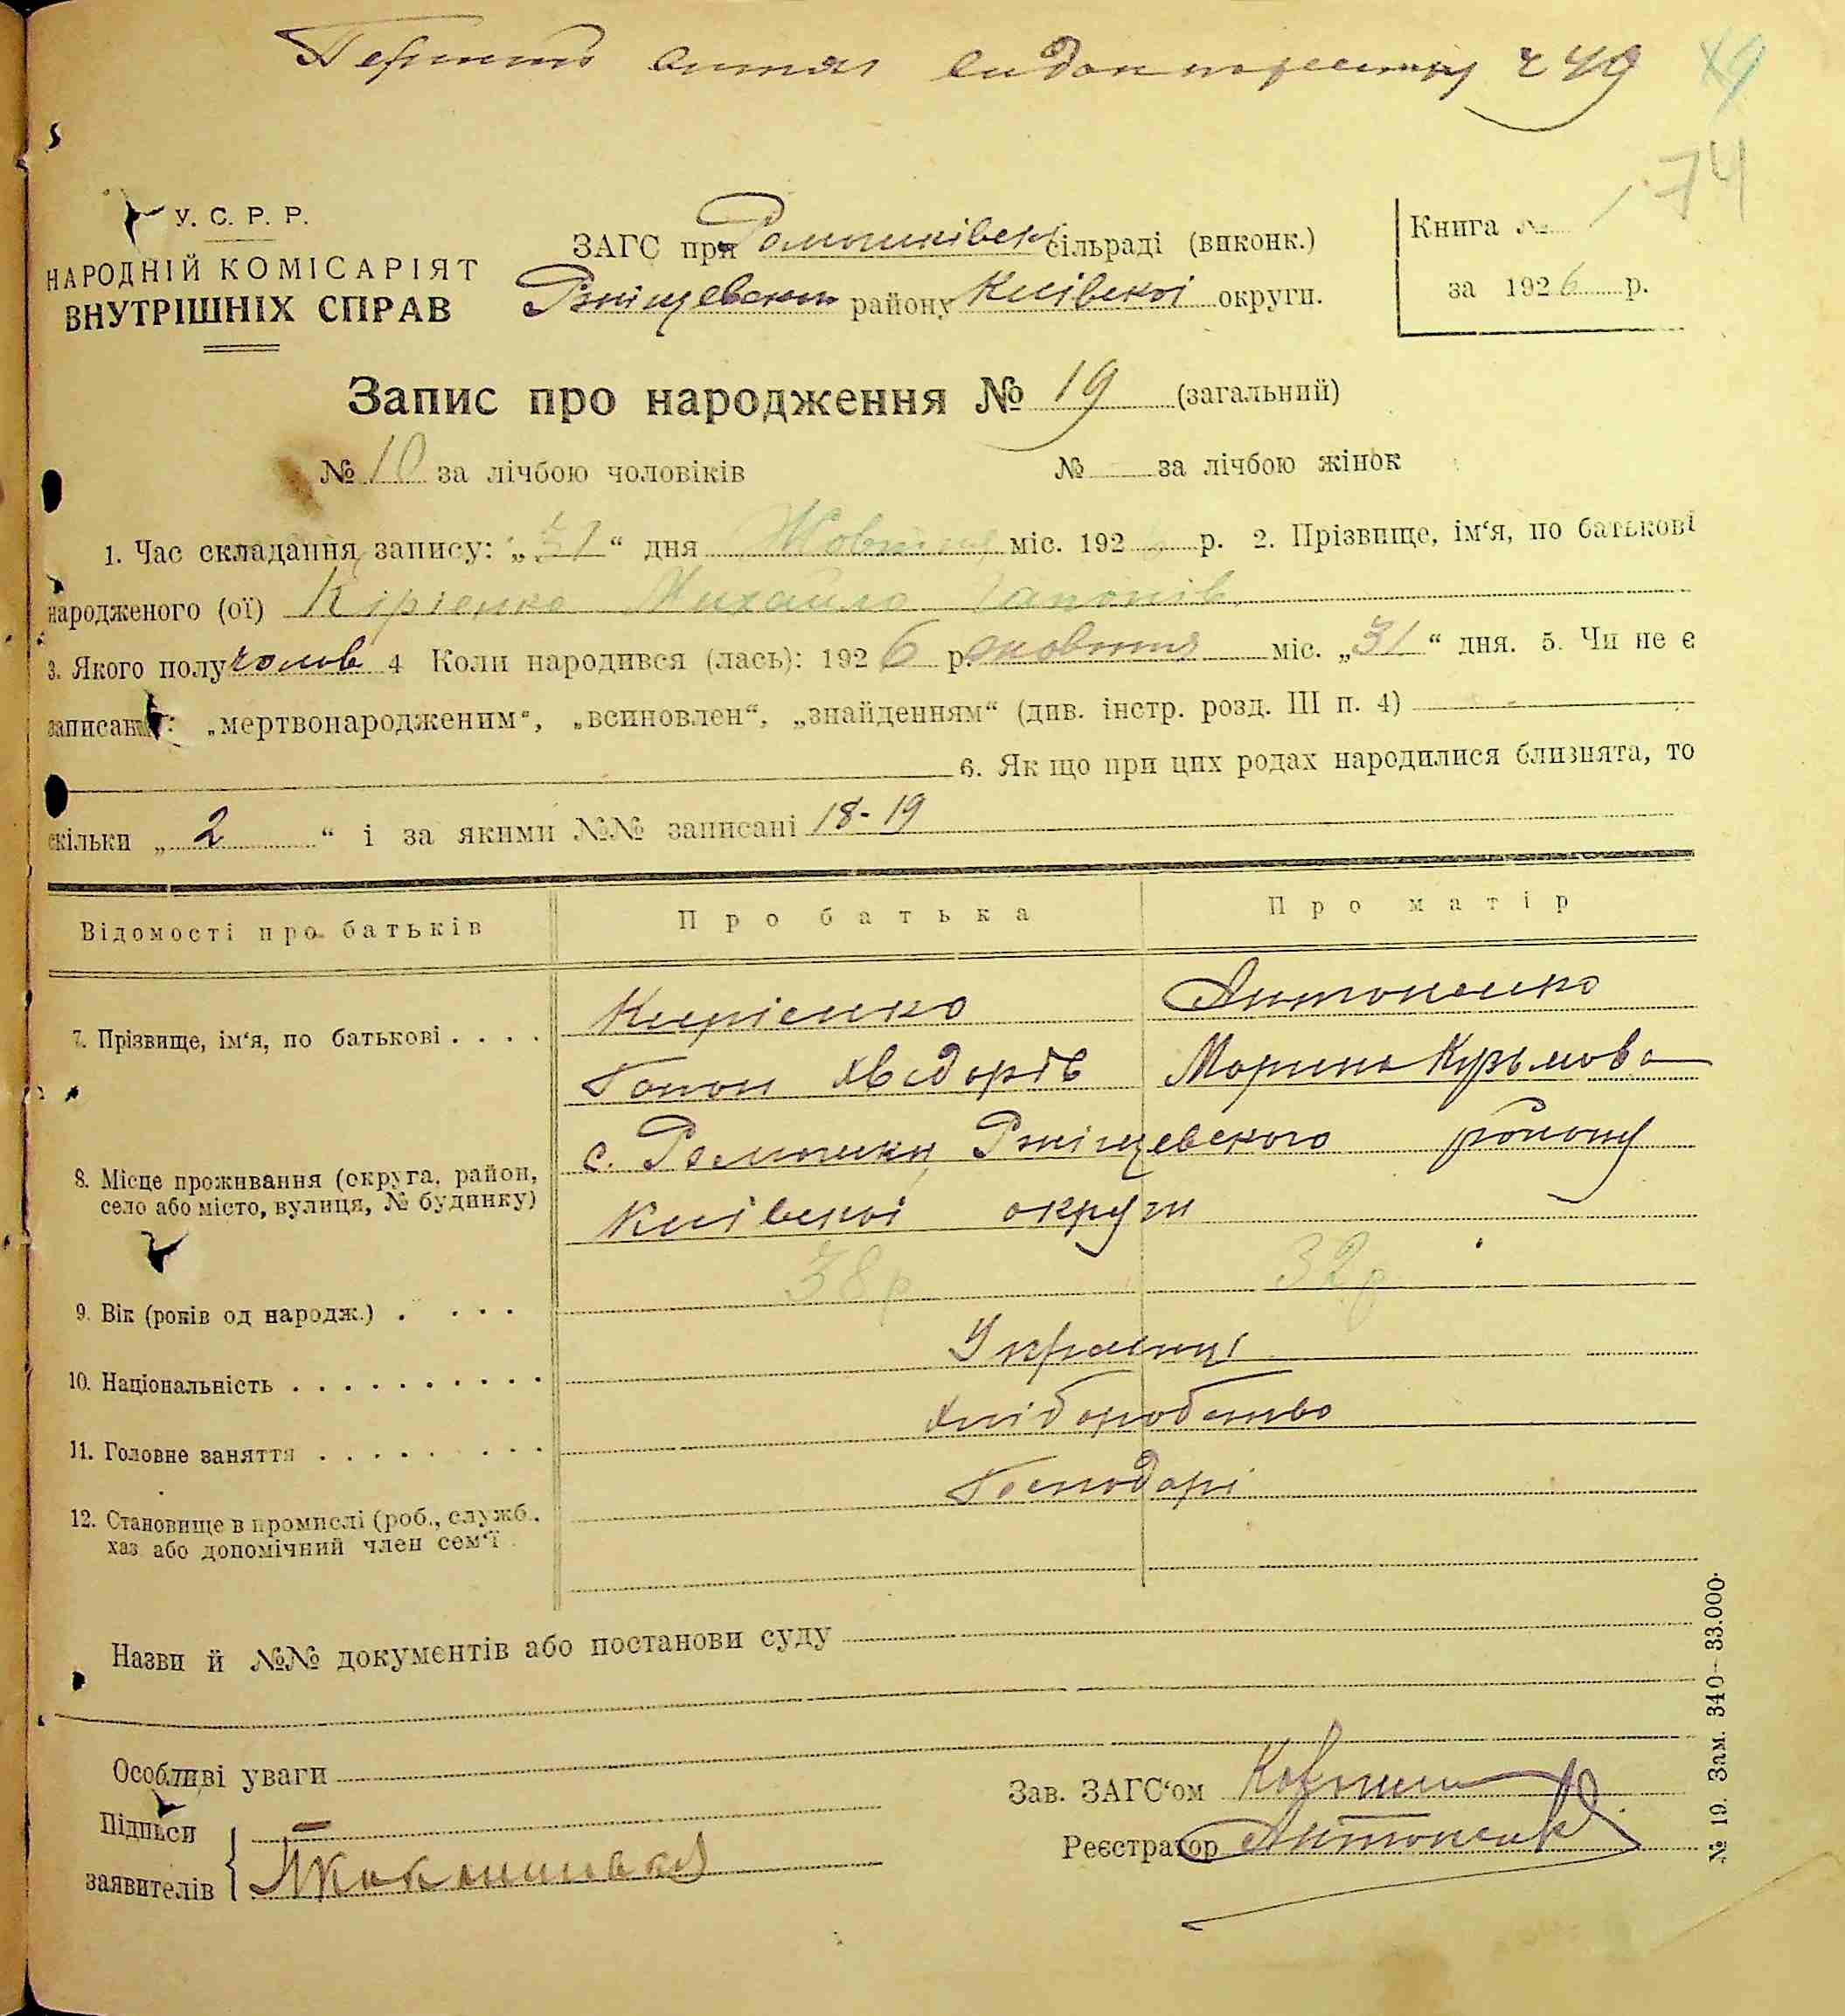 витяг видан по реєстру ч 49
74
У. С. Р. Р.
НАРОДНІЙ КОМІСАРІЯТ
ВНУТРІШНІХ СПРАВ
ЗАГС при Ромашківськ сільраді (виконк.)
Ржіщевського району Київської округи.
Книга №
за 1926 р.
Запис про народження № 19 (загальний)
№ 10 за лічбою чоловіків № за лічбою жінок
1. Час складання запису: „31“ дня Жовтня міс. 192 р. 2. Прізвище, ім‘я, по батькові
народженого (ої) Кірієнко Михайло Гапонів
3. Якого полу чолов 4 Коли народився (лась): 1926 р. жовтня міс. „31“ дня. 5. Чи не є
записане: „мертвонародженим“, „всиновлен“, „знайденням“ (див. інстр. розд. III п. 4)
6. Як що при цих родах народилися близнята, то
скільки „ 2 “ і за якими №№ записані 18-19
Відомості про батьків Про батька Про матір
7. Прізвище, ім‘я, по батькові . . . . Кирієнко Антоненко
Гапон Хведорів Марина Кузьмова
8. Місце проживання (округа, район, село або місто, вулиця, № будинку) с. Ромашки Ржіщевського району
Київської округи
9. Вік (років од народж.) . . . . 38 р 32 р
10. Національність . . . . . . . . . . Українці
11. Головне заняття . . . . . . . . Хліборобство
12. Становище в промислі (роб., служб., Господарі
хаз. або допомічний член сем‘ї
Назви й №№ документів або постанови суду
Особливі уваги
Зав. ЗАГС‘ом
Підписи
Реєстратор Антоненко
заявителів
№ 19. Зам. 340—33.000.